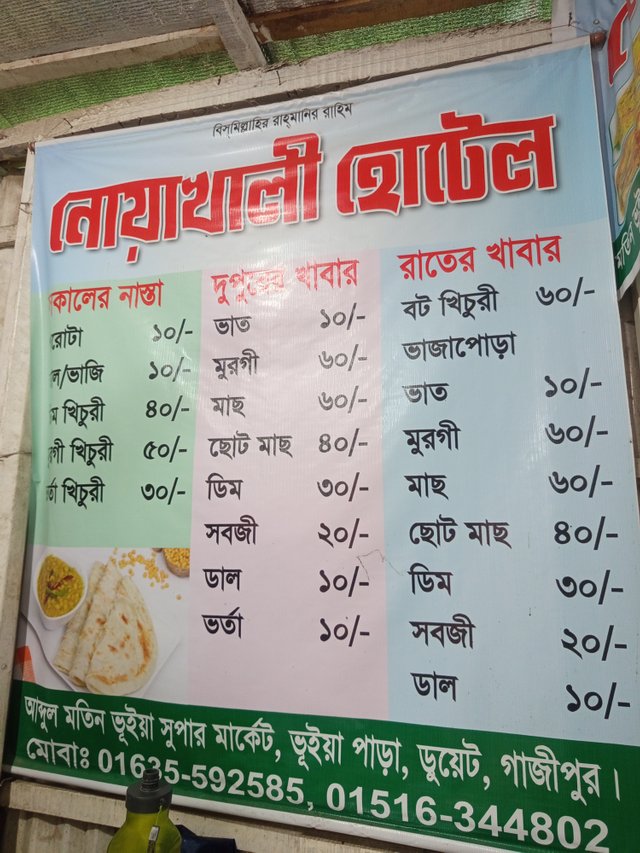 বিসমিল্লাহির রাহ্‌মানির রাহিম
নোয়াখালী হোটেল
সকালের নাস্তা
রোটা ১০/-
ল/ভাজি ১০/-
ম খিচুরী ৪০/-
রগী খিচুরী ৫০/-
র্তা খিচুরী ৩০/-
দুপুরের খাবার
ভাত ১০/-
মুরগী ৬০/-
মাছ ৬০/-
ছোট মাছ ৪০/-
ডিম ৩০/-
সবজী ২০/-
ডাল ১০/-
ভর্তা ১০/-
রাতের খাবার
বট খিচুরী ৬০/-
ভাজাপোড়া
ভাত ১০/-
মুরগী ৬০/-
মাছ ৬০/-
ছোট মাছ ৪০/-
ডিম ৩০/-
সবজী ২০/-
ডাল ১০/-
আব্দুল মতিন ভূইয়া সুপার মার্কেট, ভূইয়া পাড়া, ডুয়েট, গাজীপুর।
মোবাঃ 01635-592585, 01516-344802